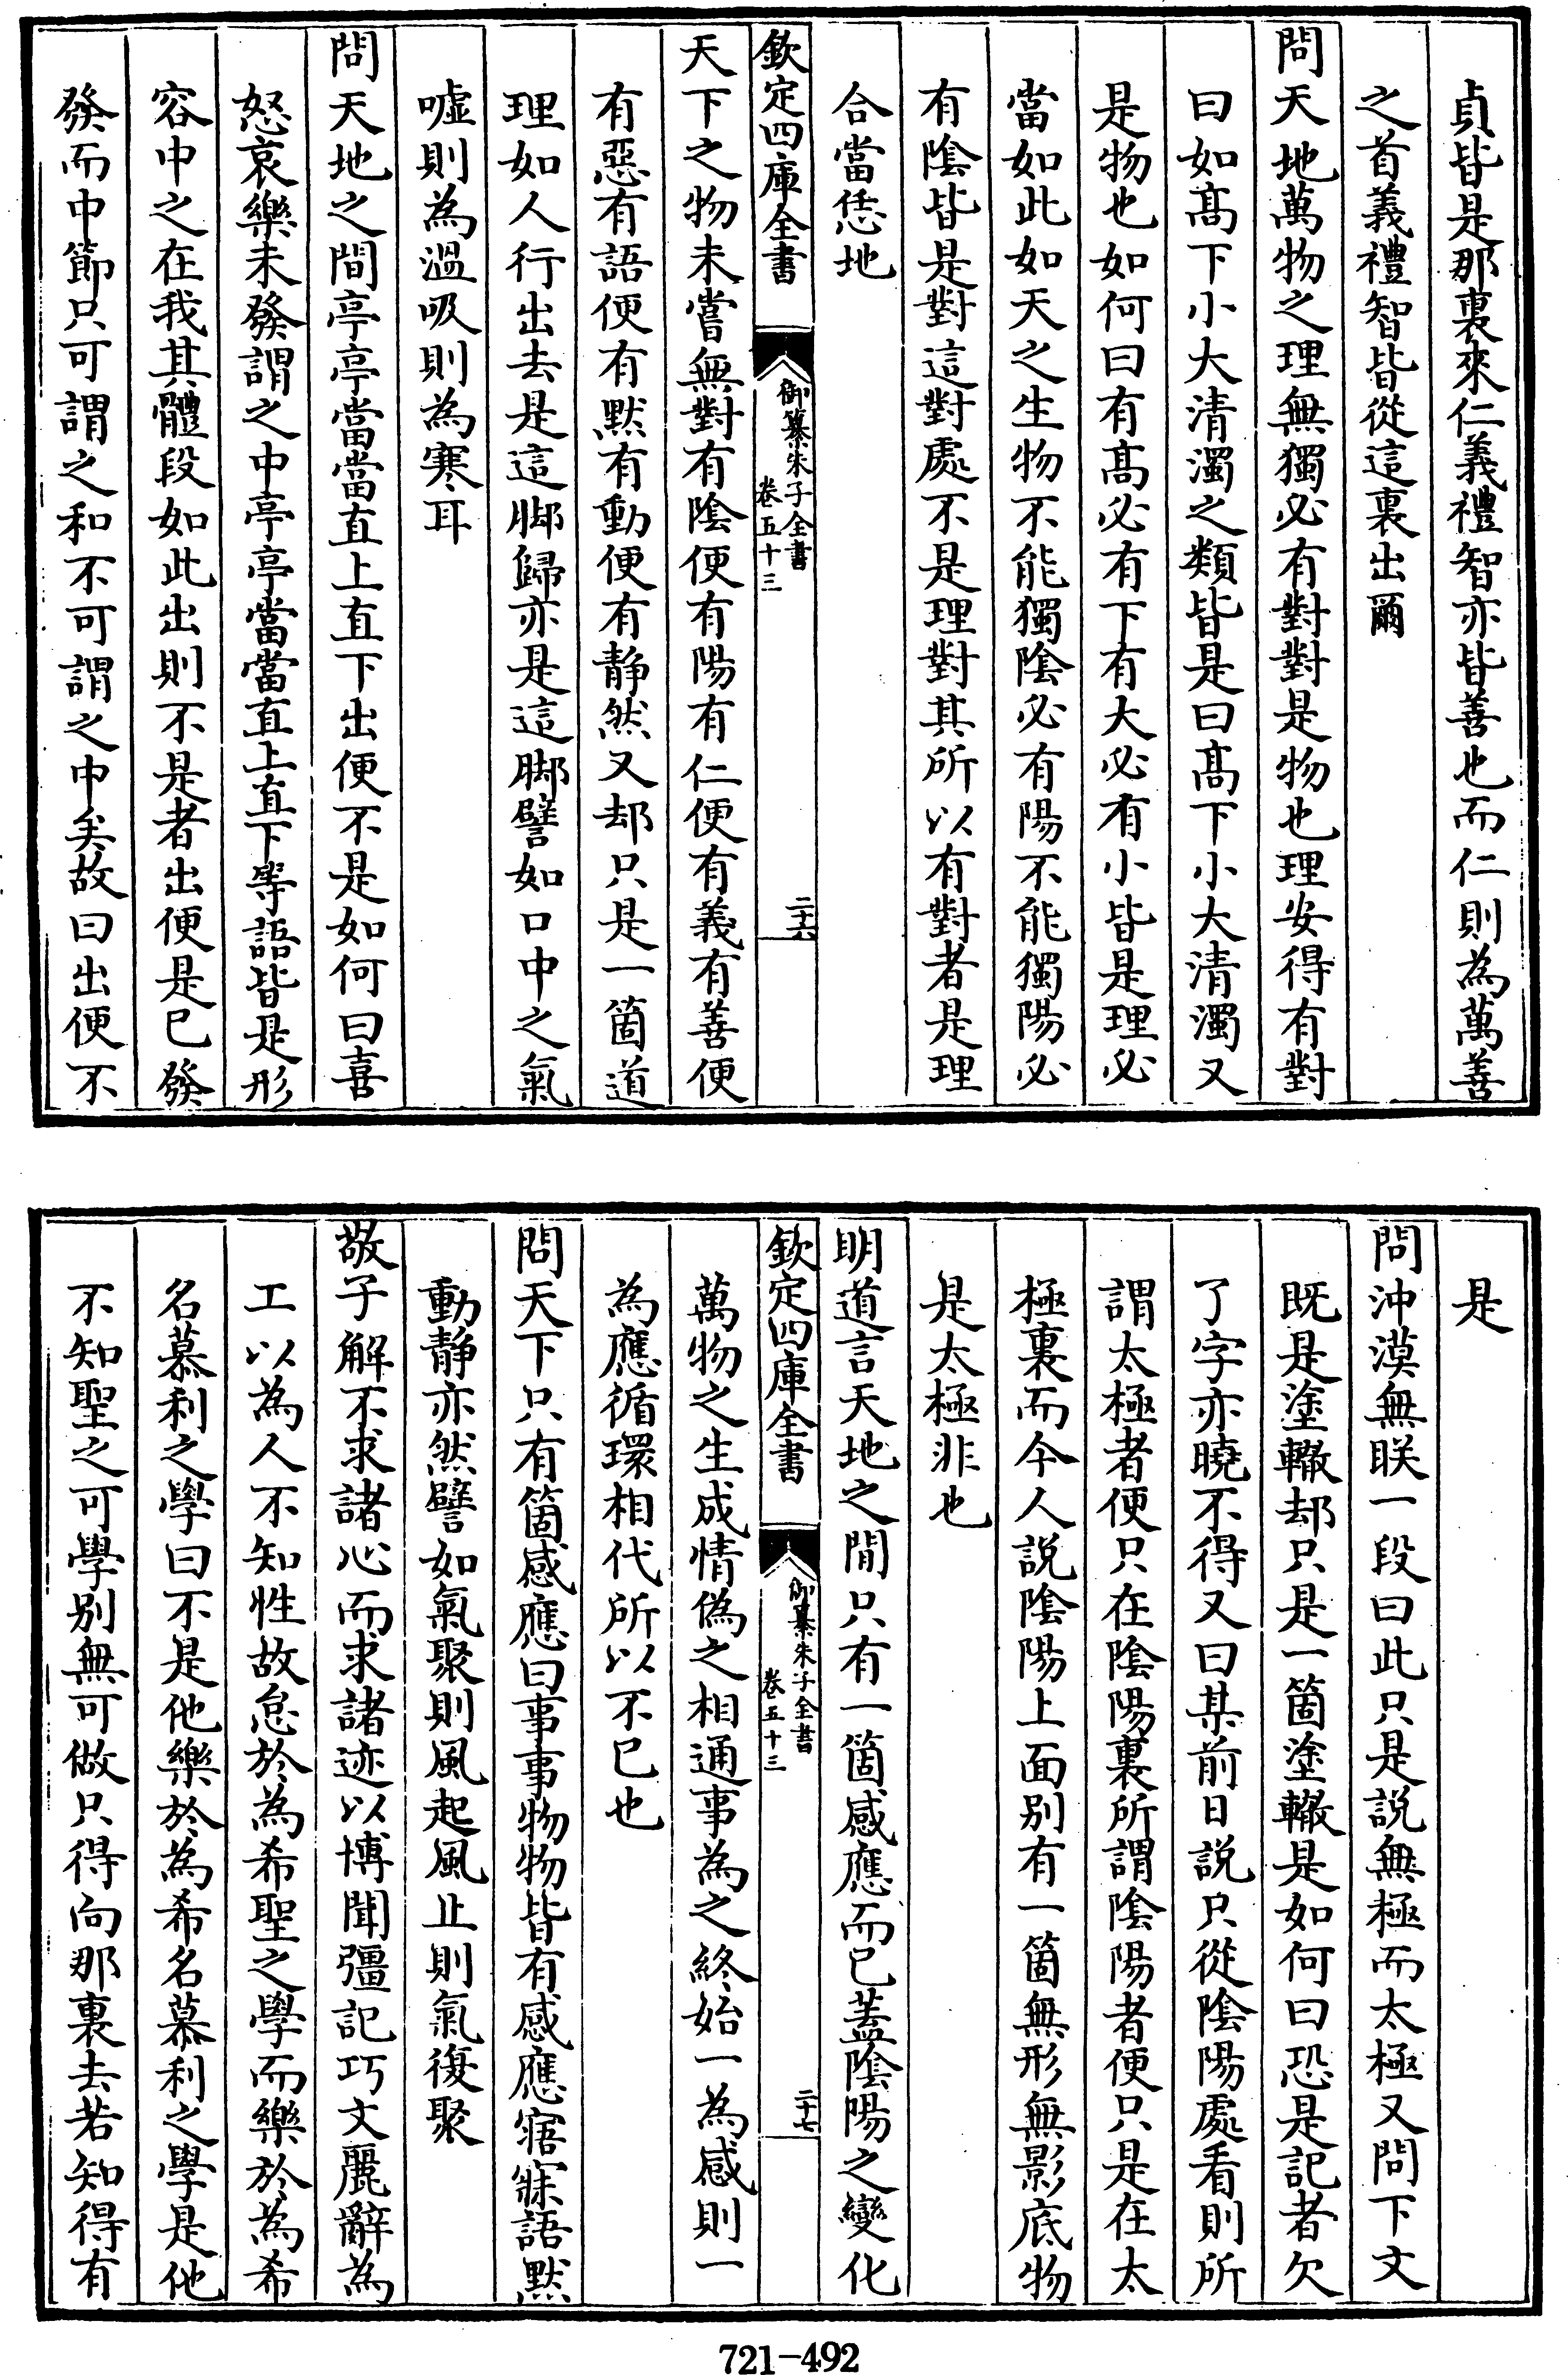 貞皆是那裏來仁義禮智亦皆善也而仁則為萬善
之首義禮智皆從這裏出爾
問天地萬物之理無獨必有對對是物也理安得有對
曰如髙下小大清濁之類皆是曰髙下小大清濁又
是物也如何曰有髙必有下有大必有小皆是理必
當如此如天之生物不能獨隂必有陽不能獨陽必
有隂皆是對這對處不是理對其所以有對者是理
合當恁地
欽定四庫全書
御纂朱子全書
卷五十三
二十六
天下之物未嘗無對有隂便有陽有仁便有義有善便
有惡有語便有默有動便有静然又却只是一箇道
理如人行出去是這脚歸亦是這脚譬如口中之氣
噓則為溫吸則為寒耳
問天地之間亭亭當當直上直下出便不是如何曰喜
怒哀樂未發謂之中亭亭當當直上直下等語皆是形
容中之在我其體段如此出則不是者出便是已發
發而中節只可謂之和不可謂之中矣故曰出便不
是
問沖漠無眹一段曰此只是説無極而太極又問下文
既是塗轍却只是一箇塗轍是如何曰恐是記者欠
了字亦曉不得又曰某前日説只從隂陽處看則所
謂太極者便只在隂陽裏所謂隂陽者便只是在太
極裏而今人説隂陽上面別有一箇無形無影底物
是太極非也
明道言天地之間只有一箇感應而已蓋隂陽之變化
欽定四庫全書
御纂朱子全書
卷五十三
二十七
萬物之生成情偽之相通事為之終始一為感則一
為應循環相代所以不已也
問天下只有箇感應曰事事物物皆有感應寤寐語默
動静亦然譬如氣聚則風起風止則氣復聚
敬子解不求諸心而求諸迹以博聞彊記巧文麗辭為
工以為人不知性故怠於為希聖之學而樂於為希
名慕利之學曰不是他樂於為希名慕利之學是他
不知聖之可學别無可做只得向那裏去若知得有
721-492